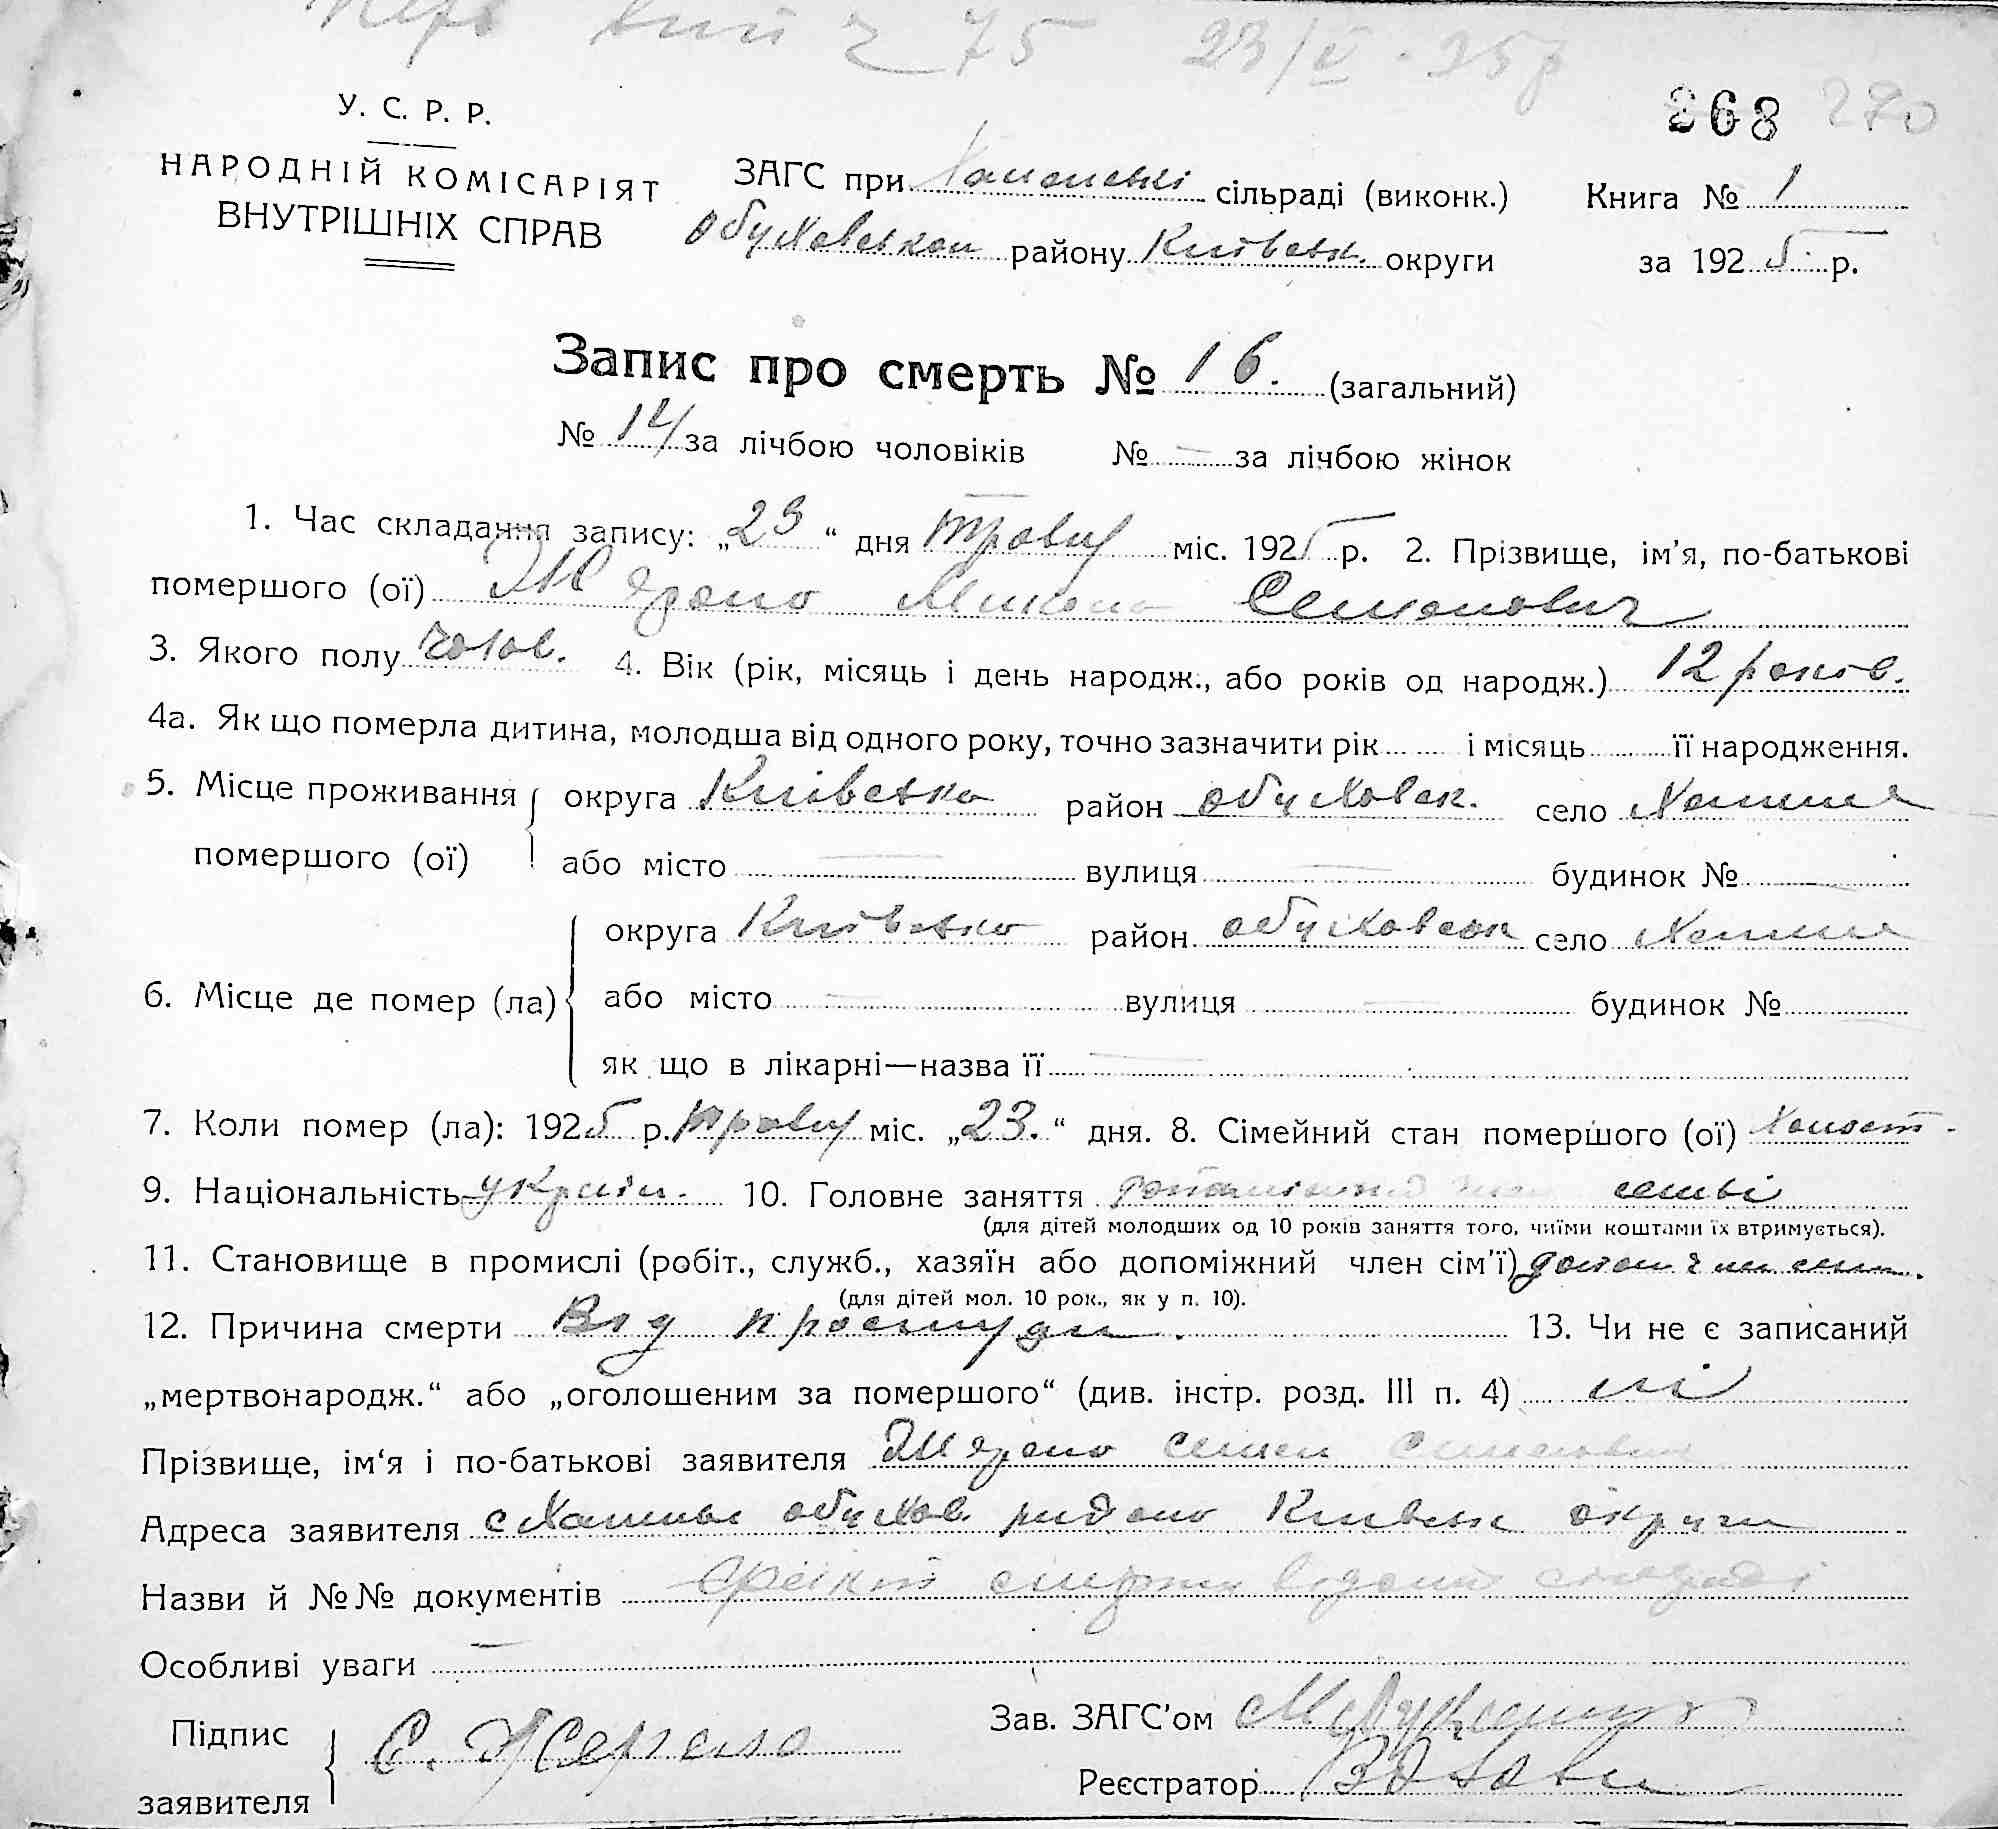 75 23/V. 25р
У. С. Р. Р.
368 270
НАРОДНІЙ КОМІСАРІЯТ
ВНУТРІШНІХ СПРАВ
ЗАГС при сільраді (виконк.) Книга № 1
Обуховськом району Київськ. округи за 1925 р.
Запис про смерть № 16. (загальний)
№ 14 за лічбою чоловіків № — за лічбою жінок
1. Час складання запису: „23“ дня травня міс. 1925 р. 2. Прізвище, ім’я, по-батькові
помершого (ої) Микола Семенович
3. Якого полу чолов. 4. Вік (рік, місяць і день народж., або років од народж.) 12 років.
4а. Як що померла дитина, молодша від одного року, точно зазначити рік і місяць її народження.
5. Місце проживання округа Київська район Обуховськ. село
помершого (ої) або місто — вулиця — будинок № —
округа Київська район Обуховськ село
6. Місце де помер (ла) або місто — вулиця — будинок №
як що в лікарні—назва її —
7. Коли помер (ла): 1925 р. травня міс. „23.“ дня. 8. Сімейний стан помершого (ої) Холост.
9. Національність україн. 10. Головне заняття
(для дітей молодших од 10 років заняття того, чиїми коштами їх втримується).
11. Становище в промислі (робіт., служб., хазяїн або допоміжний член сім’ї)
(для дітей мол. 10 рок., як у п. 10).
12. Причина смерти Від простуди. 13. Чи не є записаний
„мертвонародж.“ або „оголошеним за помершого“ (див. інстр. розд. III п. 4) ні
Прізвище, ім‘я і по-батькові заявителя Семен Семенович
Адреса заявителя с Обухов. району Київськ округи
Назви й №№ документів
Особливі уваги —
Підпис
заявителя С. Жерело
Зав. ЗАГС’ом
Реєстратор